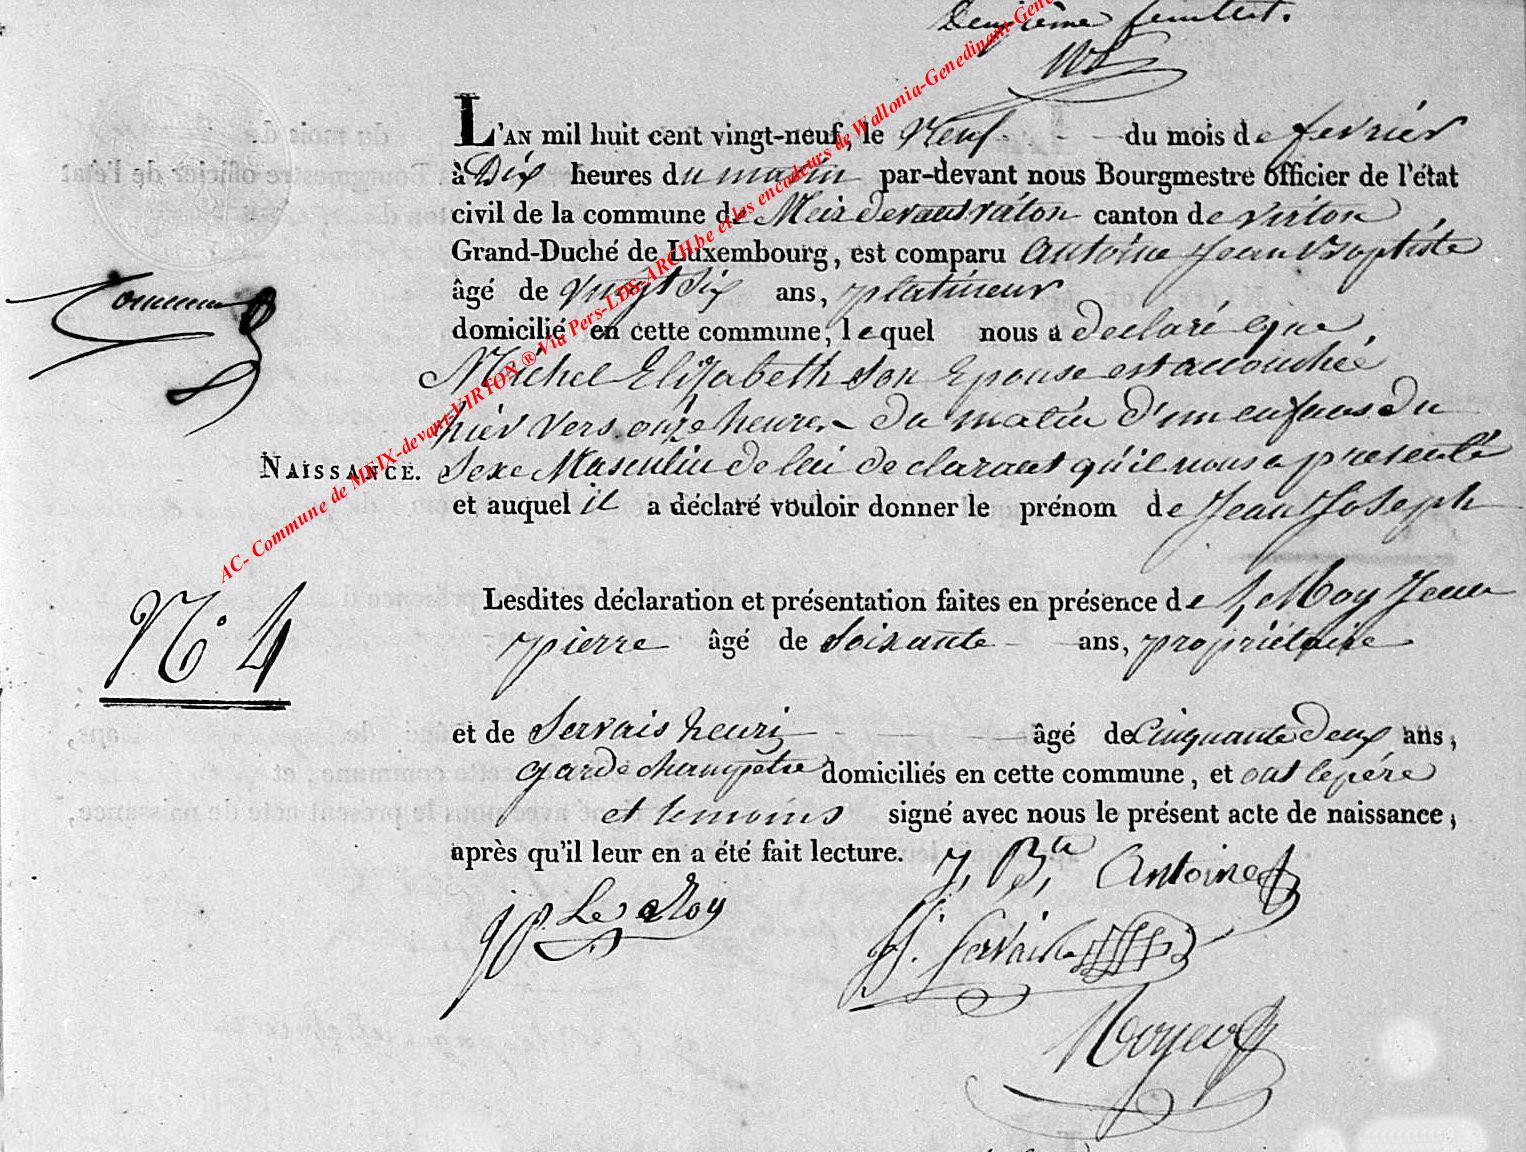 Deuxième feuillet.
L'AN mil huit cent vingt-neuf, le Neuf du mois de fevrier
à Dix heures du matin par-devant nous Bourgmestre officier de l'état
civil de la commune de Meix devant virton canton de virton
Grand-Duché de Luxembourg, est comparu Antoine Jean Baptiste
âgé de vingt Six ans, platineur
domicilié en cette commune, lequel nous a declaré que
Michel Elizabeth Son Epouse est accouchée
hier vers onze heures du matin d'un enfans du
NAISSANCE. Sexe Masculin de lui declarant qu'il nous a presenté
et auquel il a déclaré vouloir donner le prénom de Jean Joseph
N° 4
Lesdites déclaration et présentation faites en présence de Le Roy Jean
pierre âgé de Soixante ans, propriétaire
et de Servais henri âgé de Cinquante Deux ans,
garde champetre domiciliés en cette commune, et ont le père
et temoins signé avec nous le présent acte de naissance,
après qu'il leur en a été fait lecture.
J. B.te Antoine
jp. Le Roy
H. Servais
AC- Commune de MEIX-devant-VIRTON ® Via Pers-LDS-ARCH.be et les encodeurs de Wallonia-Genedinant-Gene